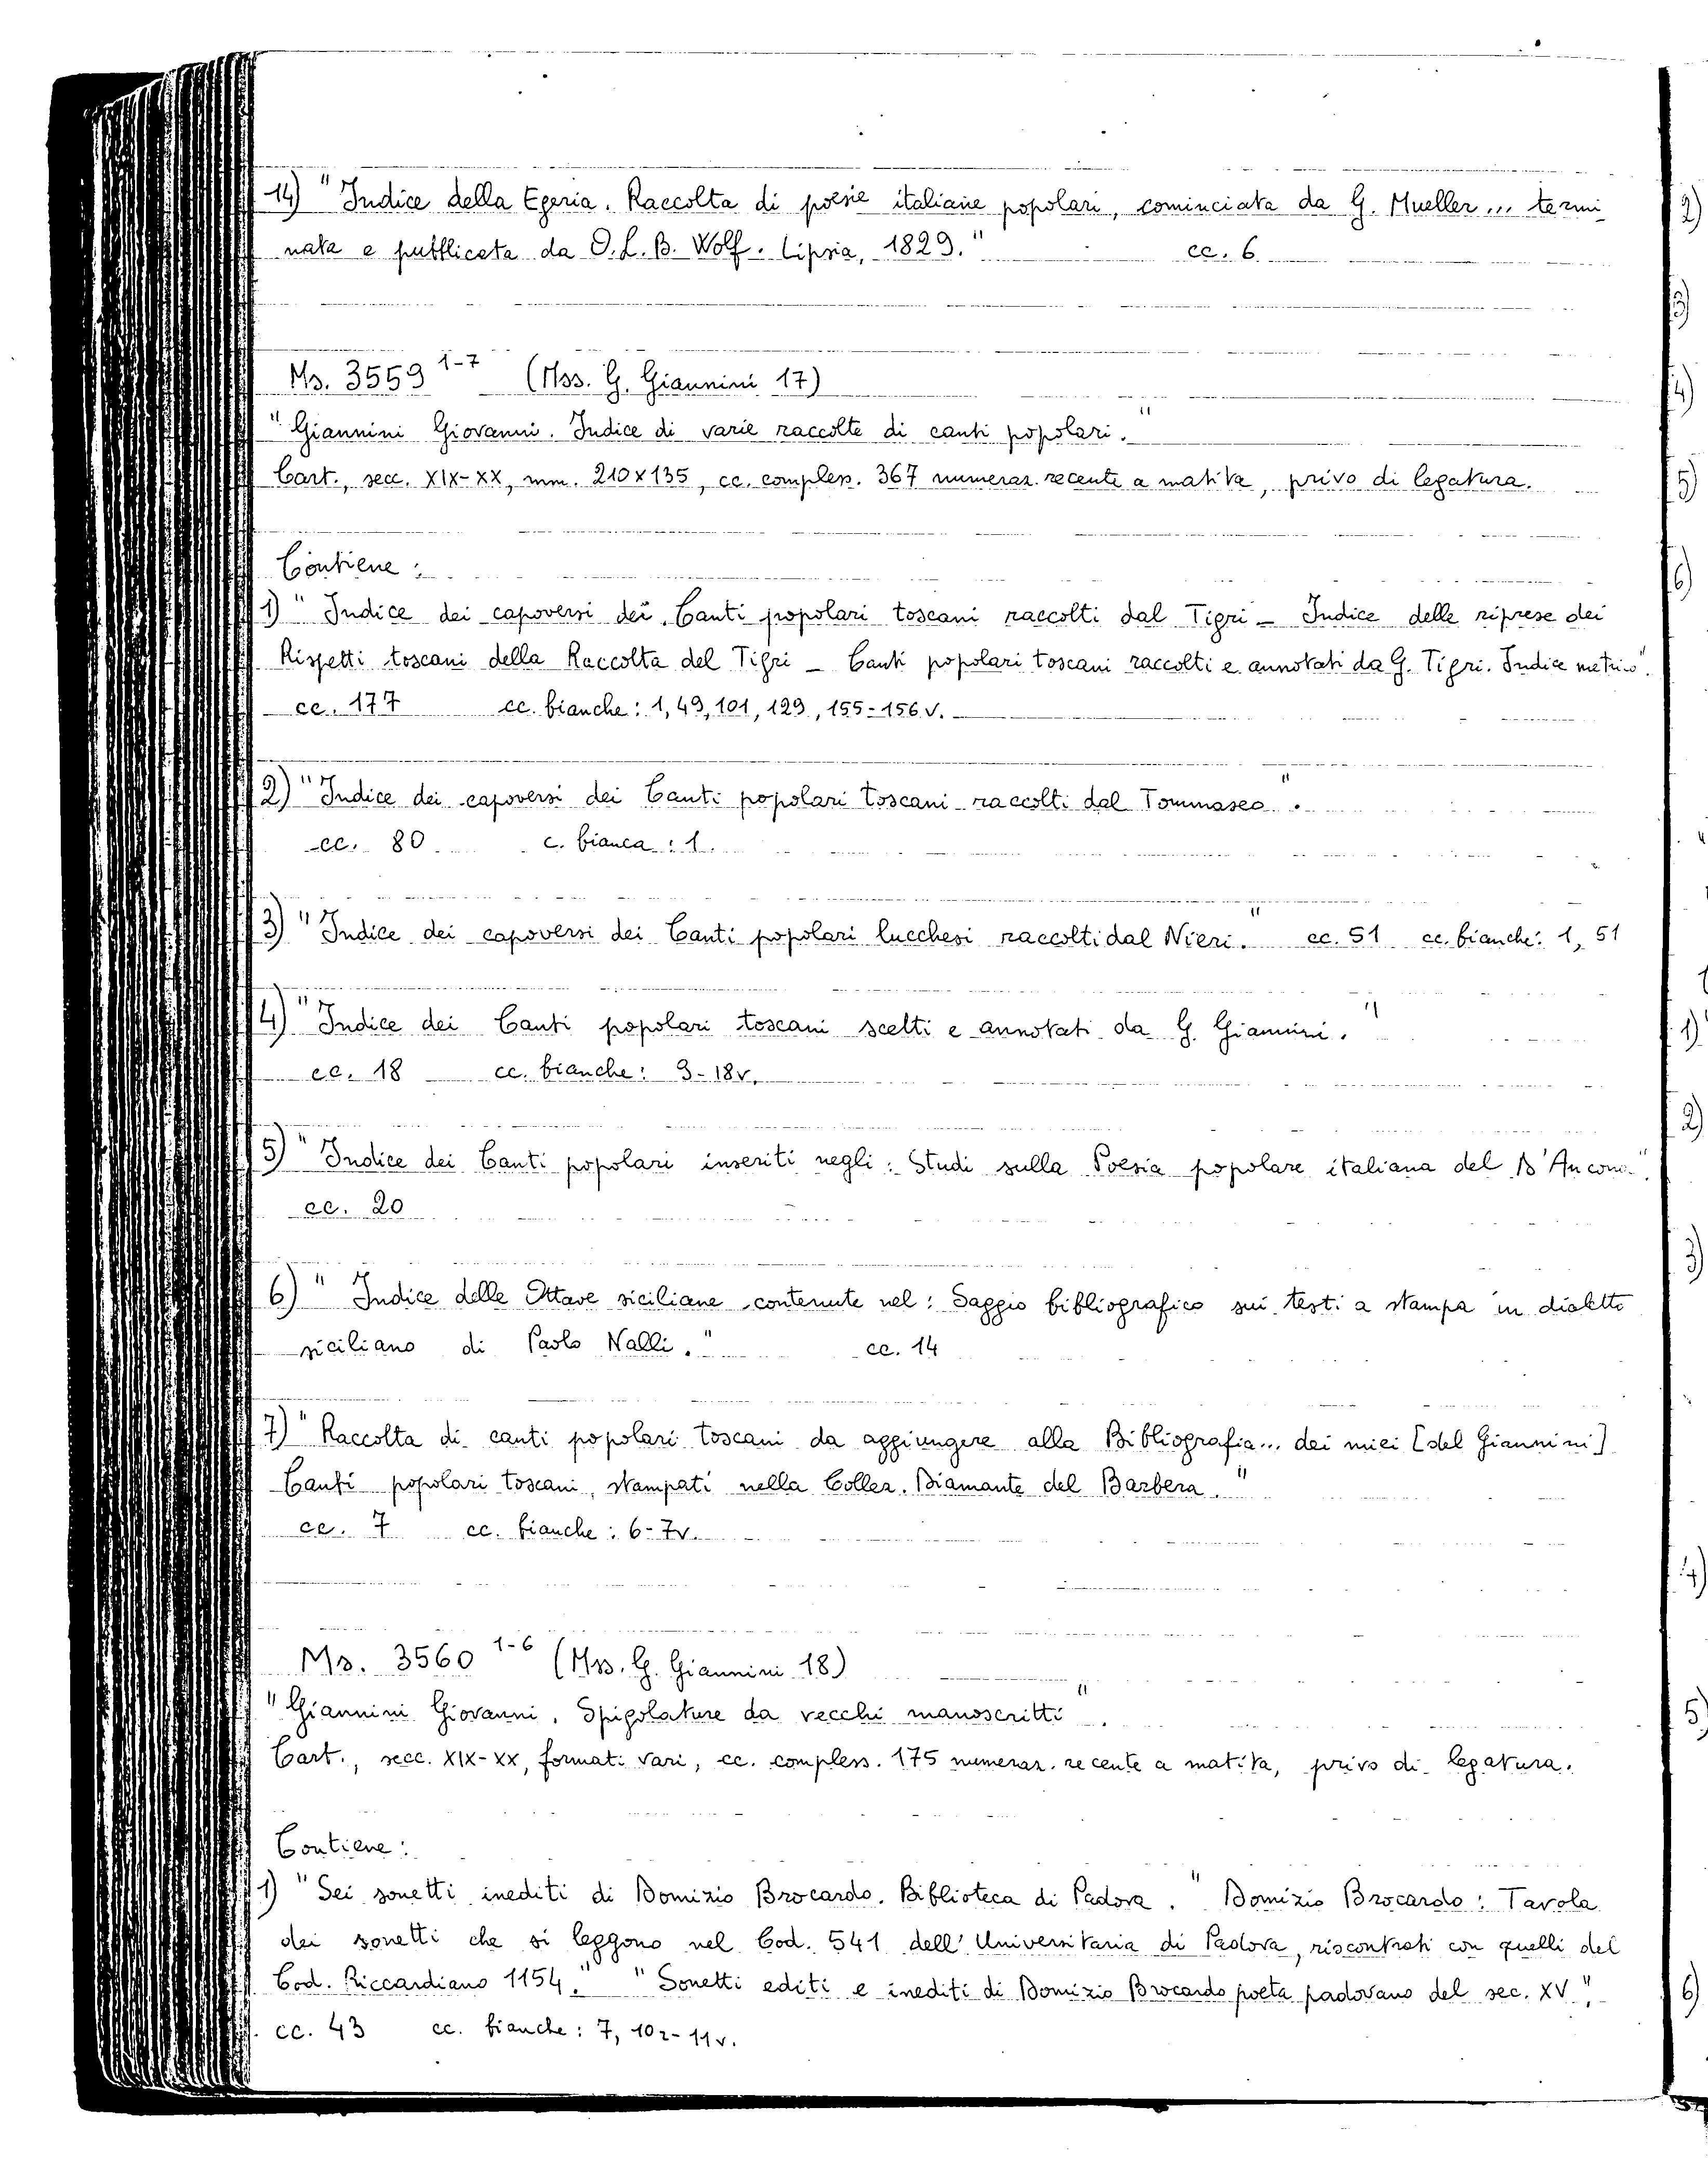 14) "Indice della Egeria. Raccolta di poesie italiane popolari, cominciata da G. Mueller... termi-
nata e pubblicata da O.L.B. Wolf. Lipsia, 1829." cc. 6
Ms. 3559 1-7 (Mss. G. Giannini 17)
"Giannini Giovanni. Indice di varie raccolte di canti popolari."
Cart., secc. XIX-XX, mm. 210x135, cc. compless. 367 numeraz. recente a matita, privo di legatura.
Contiene:
1) "Indice dei capoversi dei Canti popolari toscani raccolti dal Tigri - Indice delle riprese dei
Rispetti toscani della Raccolta del Tigri - Canti popolari toscani raccolti e annotati da G. Tigri. Indice metrico".
cc. 177 cc. bianche: 1, 49, 101, 129, 155-156v.
2) "Indice dei capoversi dei Canti popolari toscani raccolti dal Tommaseo".
cc. 80 c. bianca: 1.
3) "Indice dei capoversi dei Canti popolari lucchesi raccolti dal Nieri." cc. 51 cc. bianche: 1, 51
4) "Indice dei Canti popolari toscani scelti e annotati da G. Giannini."
cc. 18 cc. bianche: 9-18v.
5) "Indice dei Canti popolari inseriti negli: Studi sulla Poesia popolare italiana del D'Ancona".
cc. 20
6) "Indice delle Ottave siciliane contenute nel: Saggio bibliografico sui testi a stampa in dialetto
siciliano di Paolo Nalli." cc. 14
7) "Raccolta di canti popolari toscani da aggiungere alla Bibliografia... dei miei [del Giannini]
Canti popolari toscani, stampati nella Collez. Diamante del Barbera."
cc. 7 cc. bianche: 6-7v.
Ms. 3560 1-6 (Mss. G. Giannini 18)
"Giannini Giovanni. Spigolature da vecchi manoscritti".
Cart., secc. XIX-XX, formati vari, cc. compless. 175 numeraz. recente a matita, privo di legatura.
Contiene:
1) "Sei sonetti inediti di Domizio Brocardo. Biblioteca di Padova." Domizio Brocardo: Tavola
dei sonetti che si leggono nel Cod. 541 dell'Universitaria di Padova, riscontrati con quelli del
Cod. Riccardiano 1154." "Sonetti editi e inediti di Domizio Brocardo poeta padovano del sec. XV".
cc. 43 cc. bianche: 7, 10r-11v.
2)
3)
4)
5)
6)
1)
2)
3)
4)
5)
6)